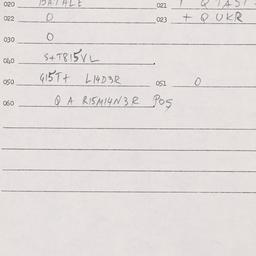 020 021
022 0 023 + Q UKR
030 0
040 S+T815VL
050 G15T+ L14D3R 051 0
060 Q A R15M14N3R POS